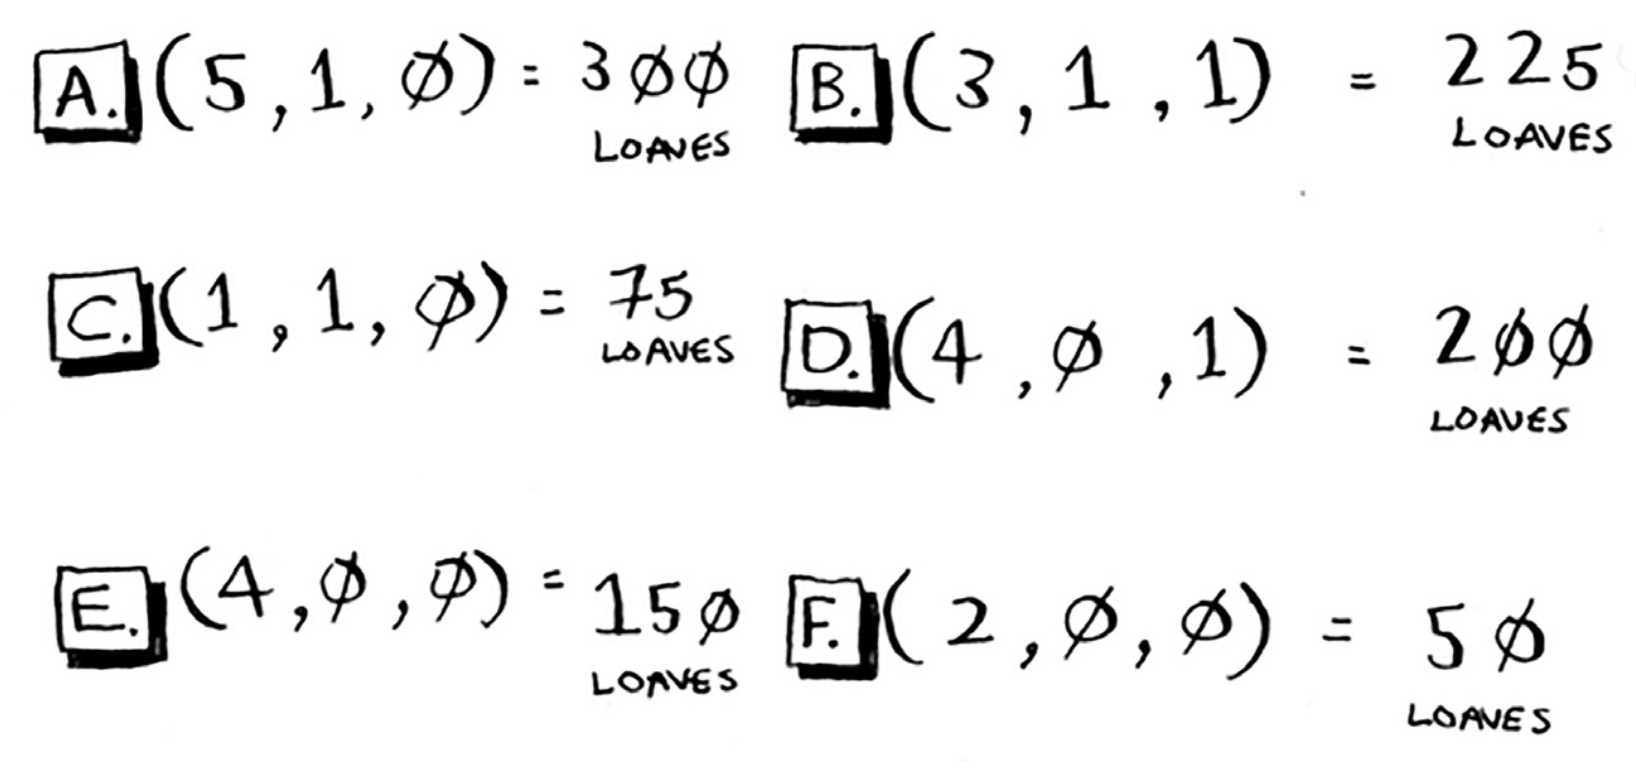 A. (5, 1, Ø) = 3ØØ LOAVES
B. (3, 1, 1) = 225 LOAVES
C. (1, 1, Ø) = 75 LOAVES
D. (4, Ø, 1) = 2ØØ LOAVES
E. (4, Ø, Ø) = 15Ø LOAVES
F. (2, Ø, Ø) = 5Ø LOAVES